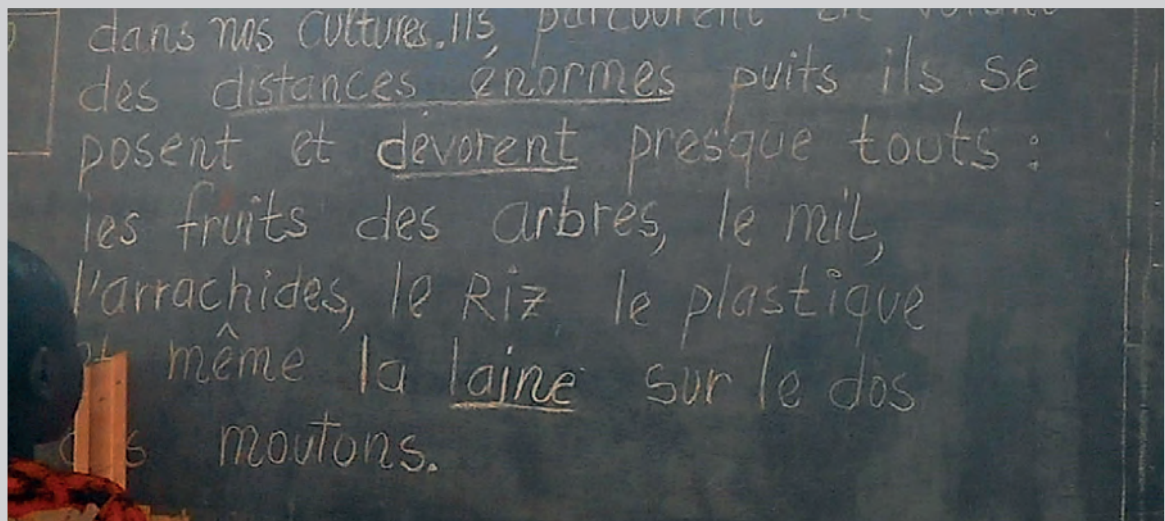 dans nos cultures. ils parcourent en volant
des distances énormes puits ils se
posent et dévorent presque touts :
les fruits des arbres, le mil,
l'arrachides, le Riz le plastique
et même la laine sur le dos
des moutons.